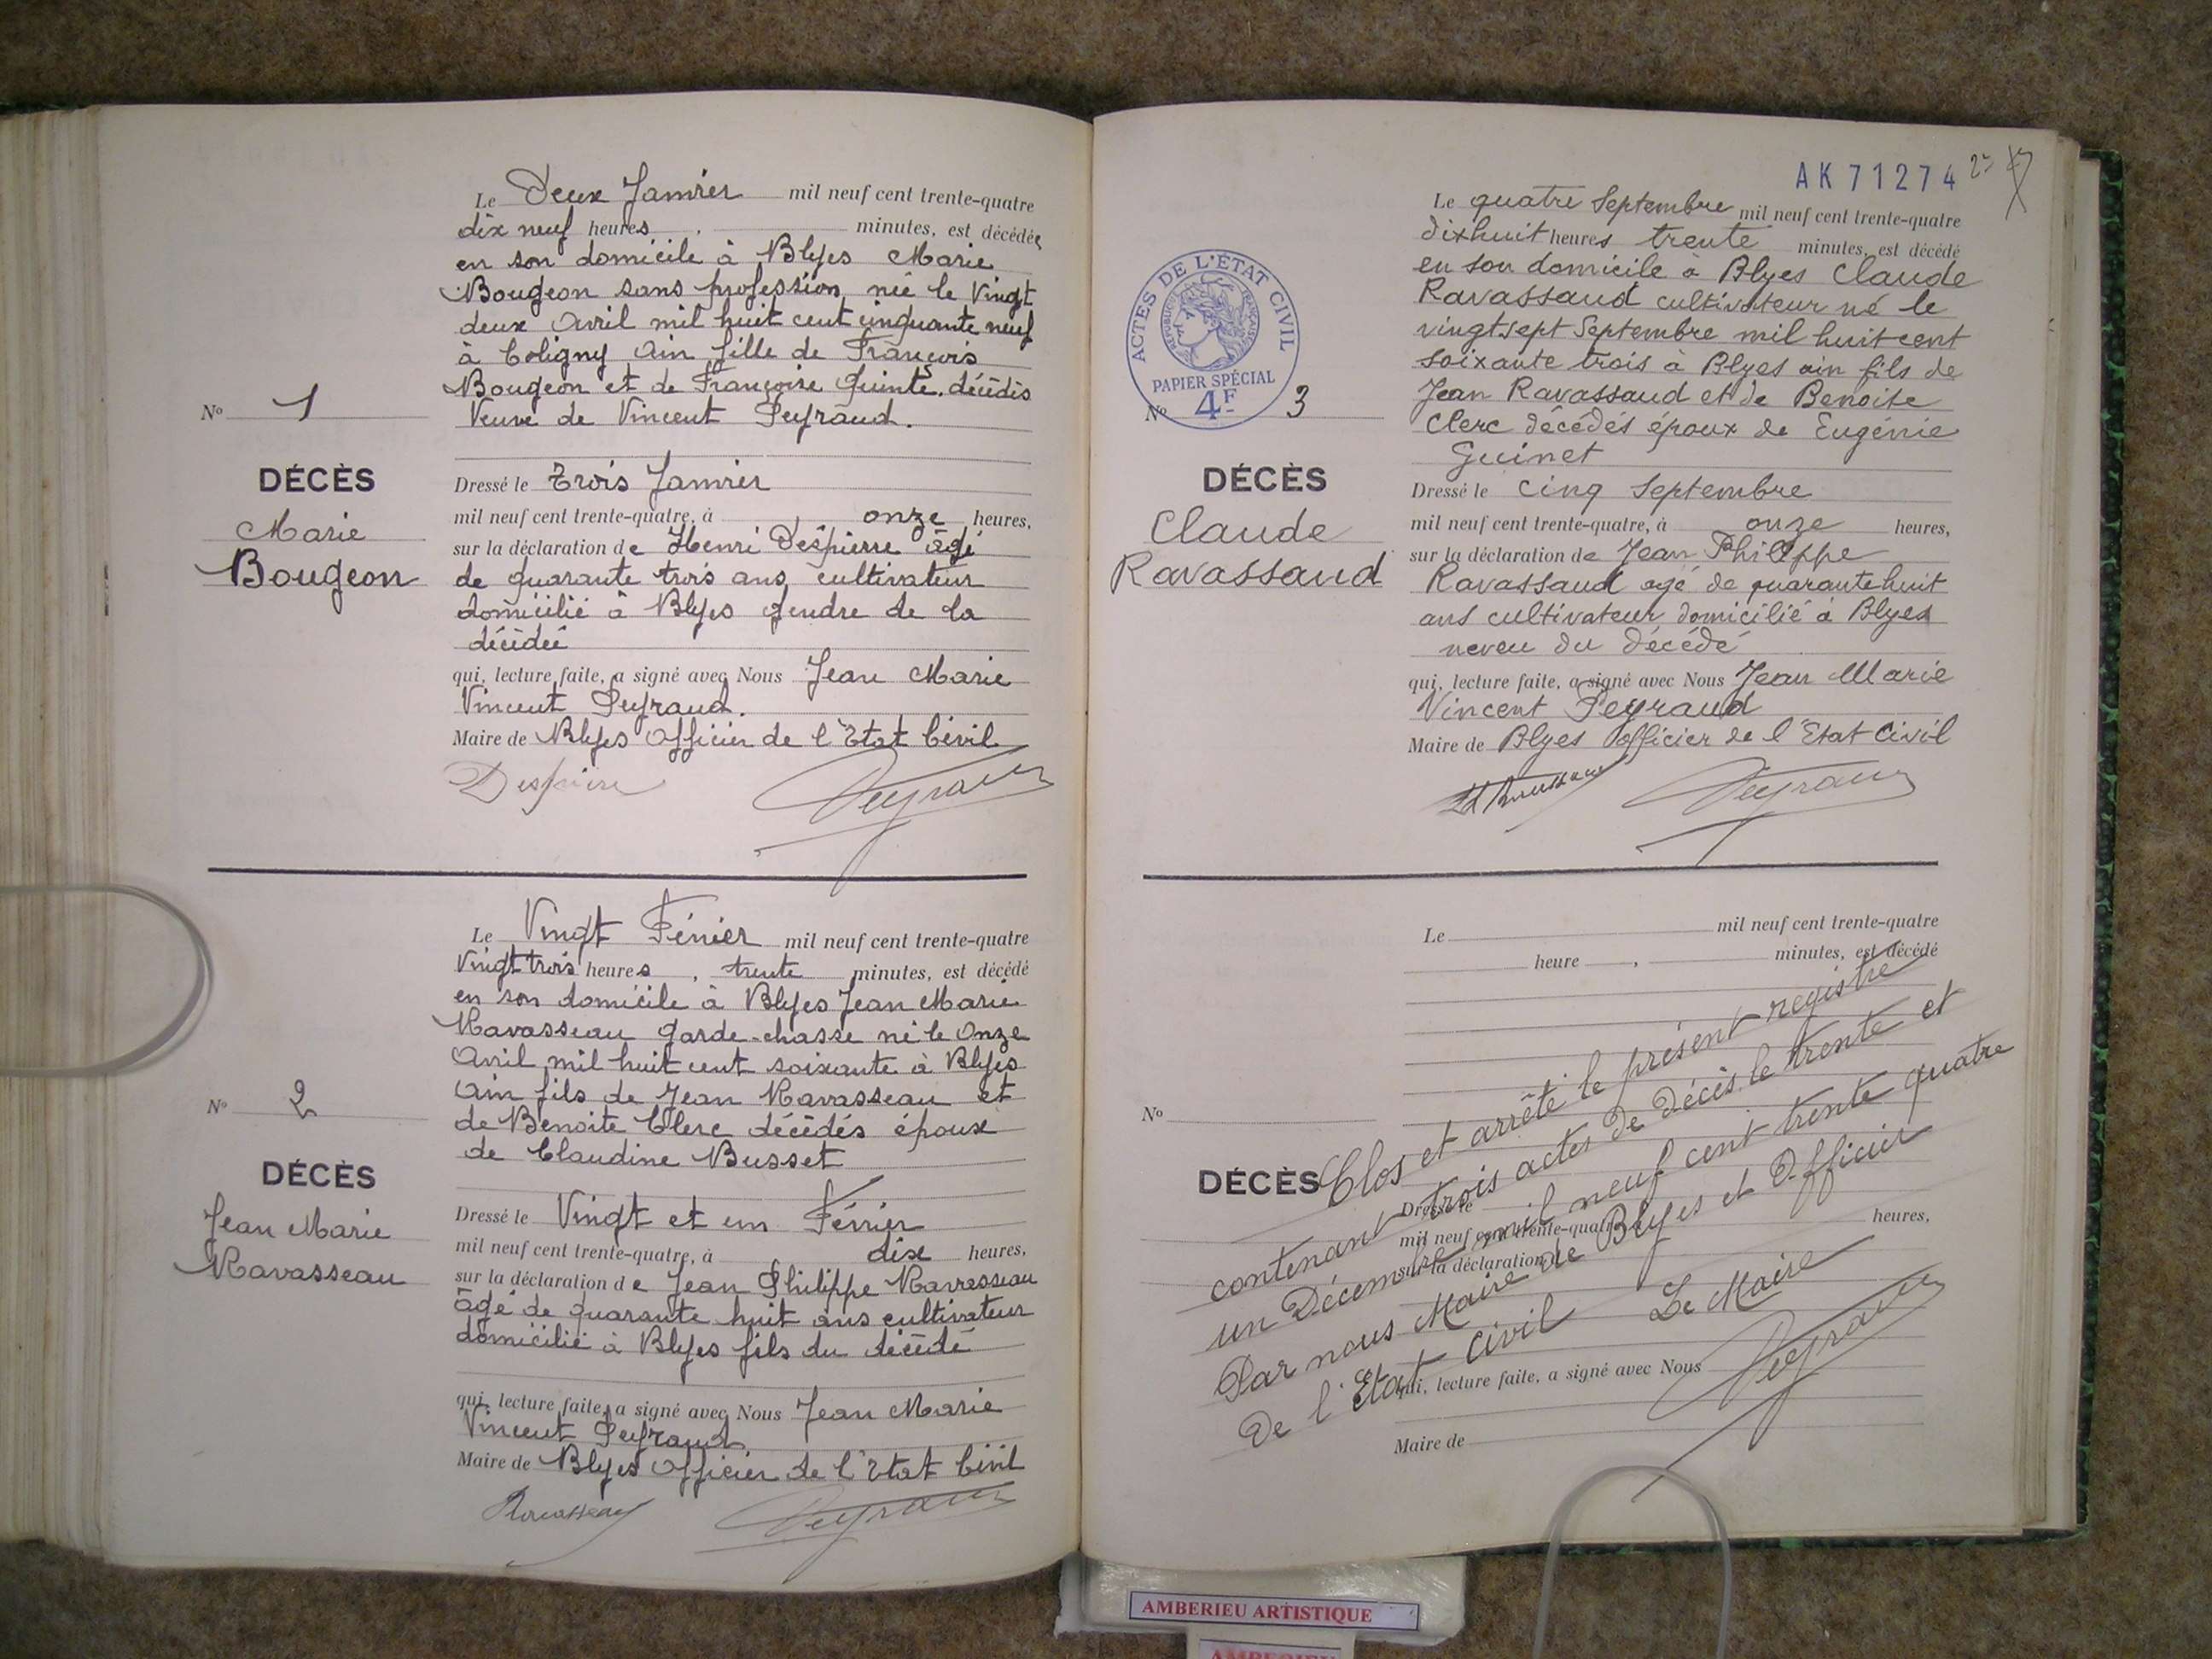 Le Deux Janvier mil neuf cent trente-quatre
dix neuf heures, minutes, est décédée
en son domicile à Blyes Marie
Bougeon sans profession née le Vingt
deux Avril mil huit cent cinquante neuf
à Coligny Ain fille de François
Bougeon et de Françoise Guints décédés
Veuve de Vincent Peyraud.
Nº 1
DÉCÈS
Marie
Bougeon
Dressé le Trois Janvier
mil neuf cent trente-quatre, à onze heures,
sur la déclaration de Henri Despierre âgé
de quarante trois ans cultivateur
domicilié à Blyes Gendre de la
décédée
qui, lecture faite, a signé avec Nous Jean Marie
Vincent Peyraud.
Maire de Blyes Officier de l'Etat Civil
Despierre Peyraud
Le Vingt Février mil neuf cent trente-quatre
Vingt trois heures, trente minutes, est décédé
en son domicile à Blyes Jean Marie
Ravasseau garde-chasse né le Onze
Avril mil huit cent soixante à Blyes
Ain fils de Jean Ravasseau et
de Benoite Clerc décédés époux
de Claudine Busset
Nº 2
DÉCÈS
Jean Marie
Ravasseau
Dressé le Vingt et un Février
mil neuf cent trente-quatre, à dix heures,
sur la déclaration de Jean Philippe Ravasseau
âgé de quarante huit ans cultivateur
domicilié à Blyes fils du décédé
qui, lecture faite, a signé avec Nous Jean Marie
Vincent Peyraud.
Maire de Blyes Officier de l'Etat Civil
Ravasseau Peyraud
AK 71274
Le quatre Septembre mil neuf cent trente-quatre
dixhuit heures trente minutes, est décédé
en son domicile à Blyes Claude
Ravassaud cultivateur né le
vingtsept Septembre mil huit cent
soixante trois à Blyes ain fils de
Jean Ravassaud et de Benoite
Clerc décédés époux de Eugénie
Guinet
ACTES DE L'ÉTAT CIVIL
RÉPUBLIQUE FRANÇAISE
PAPIER SPÉCIAL
4F
Nº 3
DÉCÈS
Claude
Ravassaud
Dressé le cinq Septembre
mil neuf cent trente-quatre, à onze heures,
sur la déclaration de Jean Philippe
Ravassaud agé de quarantehuit
ans cultivateur domicilié à Blyes
neveu du décédé
qui, lecture faite, a signé avec Nous Jean Marie
Vincent Peyraud
Maire de Blyes officier de l'Etat Civil
Peyraud
Le mil neuf cent trente-quatre
heure , minutes, est décédé
Nº
DÉCÈS
Dressé le
mil neuf cent trente-quatre heures,
sur la déclaration d
qui, lecture faite, a signé avec Nous
Maire de
Clos et arrêté le présent registre
contenant trois actes de décès le trente et
un Décembre mil neuf cent trente quatre
Par nous Maire de Blyes et Officier
de l'Etat Civil Le Maire
Peyraud
AMBERIEU ARTISTIQUE
AMBERIEU